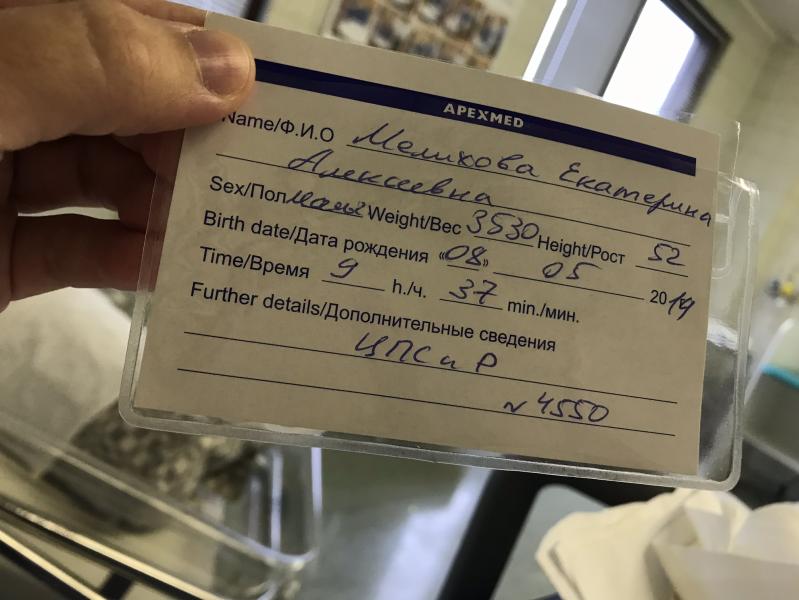 APEXMED
Name/Ф.И.О Мелихова Екатерина
Алексеевна
Sex/Пол мальч Weight/Вес 3530 Height/Рост 52
Birth date/Дата рождения «08» 05 2019
Time/Время 9 h./ч. 37 min./мин.
Further details/Дополнительные сведения
ЦПС и Р
№ 4550